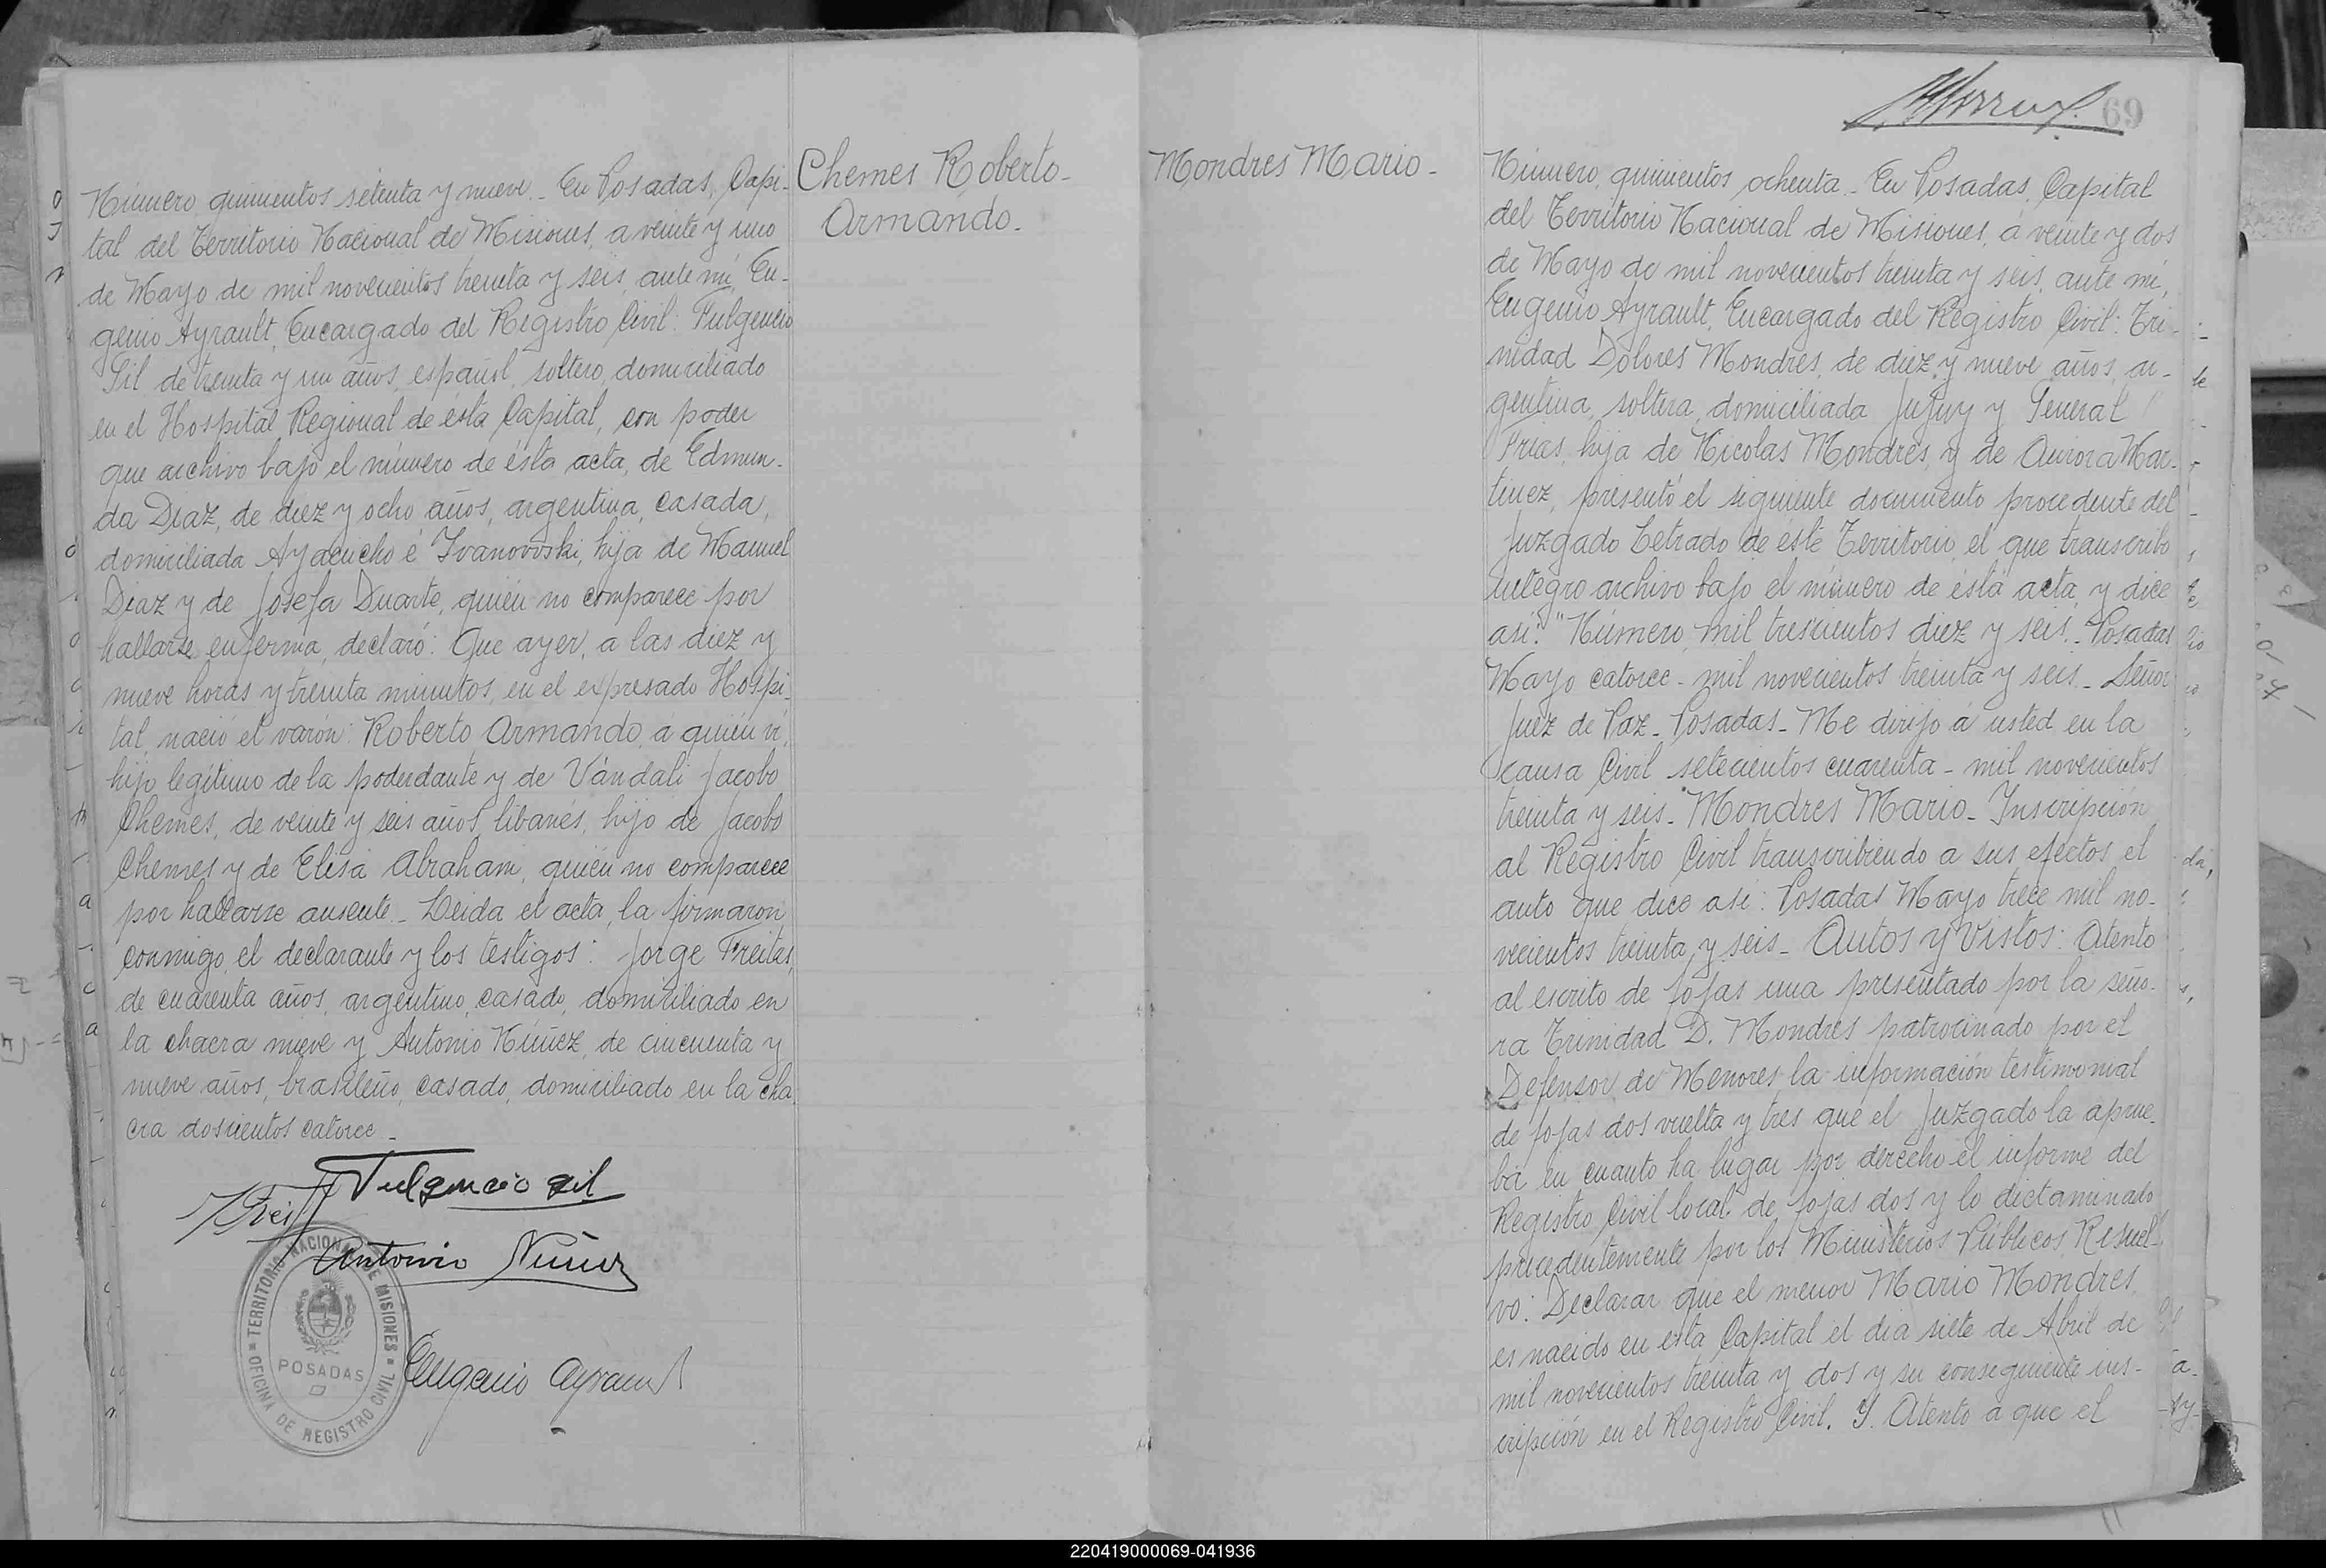 Chemes Roberto-
Armando.
Número quinientos setenta y nueve.- En Posadas, Capi-
tal del Territorio Nacional de Misiones, a veinte y uno
de Mayo de mil novecientos treinta y seis, ante mí, Eu-
genio Ayrault, Encargado del Registro Civil: Fulgencio
Gil de treinta y un años, español, soltero, domiciliado
en el Hospital Regional de ésta Capital, con poder
que archivo bajo el número de ésta acta, de Edmun-
da Diaz, de diez y ocho años, argentina, casada,
domiciliada Ayacucho é Ivanovoski, hija de Manuel
Diaz y de Josefa Duarte, quién no comparece por
hallarse enferma, declaró: Que ayer, a las diez y
nueve horas y treinta minutos, en el expresado Hospi-
tal, nació el varón: Roberto Armando, a quién vi,
hijo legítimo de la poderdante y de Vándali Jacobo
Chemes, de veinte y seis años, libanés, hijo de Jacobo
Chemes y de Elisa Abraham, quién no comparece
por hallarse ausente.- Leida el acta, la firmaron
conmigo, el declarante y los testigos: Jorge Freitas,
de cuarenta años, argentino, casado, domiciliado en
la chacra nueve y Antonio Núñez, de cincuenta y
nueve años, brasileño, casado, domiciliado en la cha-
cra doscientos catorce.-
Fulgencio Gil
Antonio Núñez
TERRITORIO NACIONAL DE MISIONES
POSADAS
OFICINA DE REGISTRO CIVIL
Eugenio Ayrault
69
Mondres Mario-
Número quinientos ochenta.- En Posadas, Capital
del Territorio Nacional de Misiones, á veinte y dos
de Mayo de mil novecientos treinta y seis, ante mí,
Eugenio Ayrault, Encargado del Registro Civil: Tri-
nidad Dolores Mondres, de diez y nueve años, ar-
gentina, soltera, domiciliada Jujuy y General
Frias, hija de Nicolas Mondres y de Aurora Mar-
tinez, presentó el siguiente documento procedente del
Juzgado Letrado de éste Territorio, el que transcribo
integro archivo bajo el número de ésta acta, y dice
asi: "Número, mil trescientos diez y seis.- Posadas
Mayo catorce - mil novecientos treinta y seis - Señor
Juez de Paz - Posadas - Me dirijo á usted en la
causa Civil setecientos cuarenta - mil novecientos
treinta y seis - Mondres Mario - Inscripción
al Registro Civil transcribiendo a sus efectos el
auto que dice asi: Posadas Mayo trece mil no-
vecientos treinta y seis - Autos y Vistos: Atento
al escrito de fojas una presentado por la seño-
ra Trinidad D. Mondres patrocinado por el
Defensor de Menores la información testimonial
de fojas dos vuelta y tres que el Juzgado la aprue-
ba en cuanto ha lugar por derecho el informe del
Registro Civil local de fojas dos y lo dictaminado
precedentemente por los Ministerios Públicos, Resuel-
vo: Declarar que el menor Mario Mondres,
es nacido en esta Capital el día siete de Abril de
mil novecientos treinta y dos y su consiguiente ins-
cripción en el Registro Civil. Y. Atento a que el
220419000069-041936